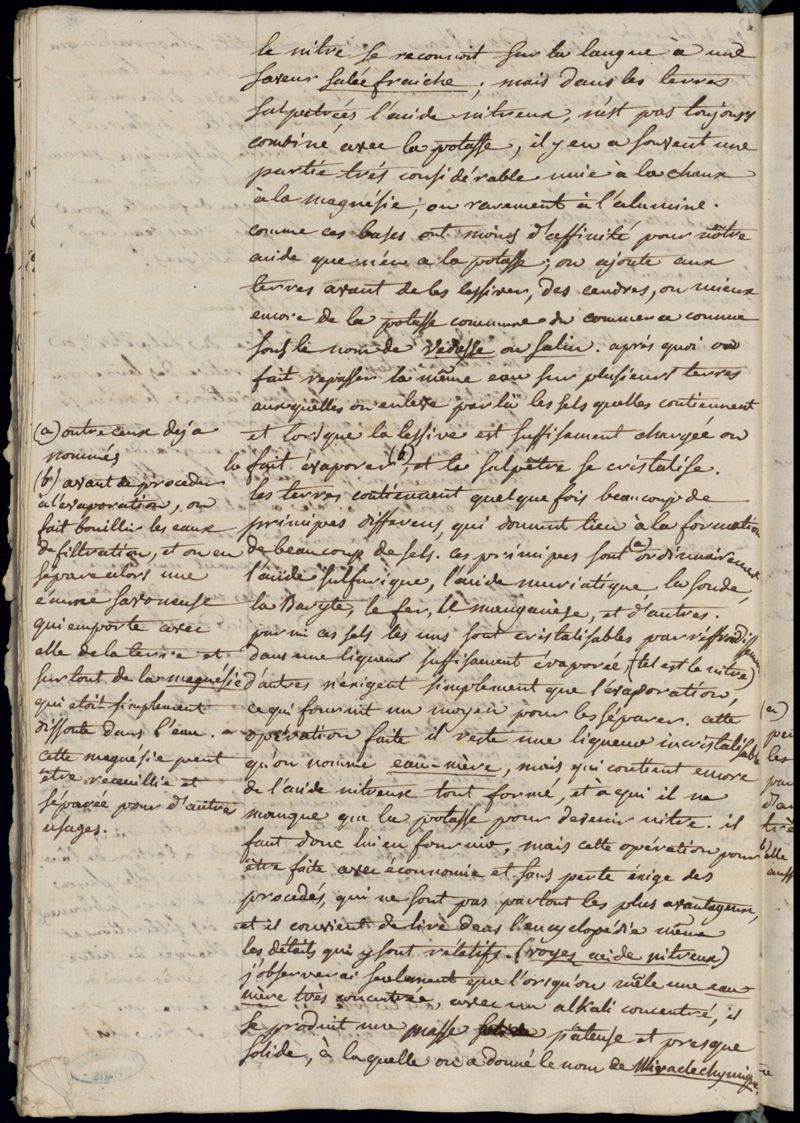 le nitre se reconnoit sur la langue à une
saveur salée fraiche ; mais dans les terres
salpetrées l'acide nitreux, n'est pas toujours
combiné avec la potasse, il y en a souvent une
partie très considérable unie à la chaux
à la magnésie, ou rarement à l'alumine.
comme ces bases ont moins d'affinité pour nôtre
acide que n'en a la potasse, on ajoute aux
terres avant de les lessiver, des cendres, ou mieux
encore de la potasse commune du commerce connue
sous le nom de Vedasse ou Salin. après quoi on
fait repasser la même eau sur plusieurs terres
auxquelles on enleve par là les sels quelles contiennent
et lorsque la lessive est suffisament chargée on
le fait évaporer (b), et le salpêtre se cristalise.
les terres contiennent quelque fois beaucoup de
principes differens, qui donnent lieu à la formation
de beaucoup de sels. ces principes sont (a) ordinairement
l'acide sulfurique, l'acide muriatique, la soude,
la Baryte, le fer, le manganèse, et d'autres.
parmi ces sels les uns sont cristalisables par réffroidissement
dans une liqueur suffisament évaporée, (tel est le nitre)
d'autres n'éxigent simplement que l'évaporation,
ce qui fournit un moyen pour les séparer. cette
opération faite il reste une liqueur incristalisable
qu'on nomme eau-mère, mais qui contient encore
de l'acide nitreux tout formé, et à qui il ne
manque que la potasse pour devenir nitre. il
faut donc lui en fournir, mais cette opération pour
être faite avec économie et sans perte éxige des
procedés, qui ne sont pas partout les plus avantageux,
et il convient de lire dans l'encyclopédie même
les détails qui y sont rélatifs. (voyez acide nitreux)
j'observerai seulement que l'orsqu'on mêle une eau-
mère très concentrée, avec un alkali concentré, il
se produit une masse pâteuse et presque
solide, à laquelle on a donné le nom de Miracle chymique.
(a) outre ceux deja
nommés
(b) avant de proceder
à l'évaporation, on
fait bouillir les eaux
de filtration, et on en
sépare alors une
écume savoneuse
qui emporte avec
elle de la terre et
surtout de la magnésie
qui etoit simplement
dissoute dans l'eau.
cette magnésie peut
être recueillie et
séparée pour d'autres
usages.
(a)
les
(b) elle